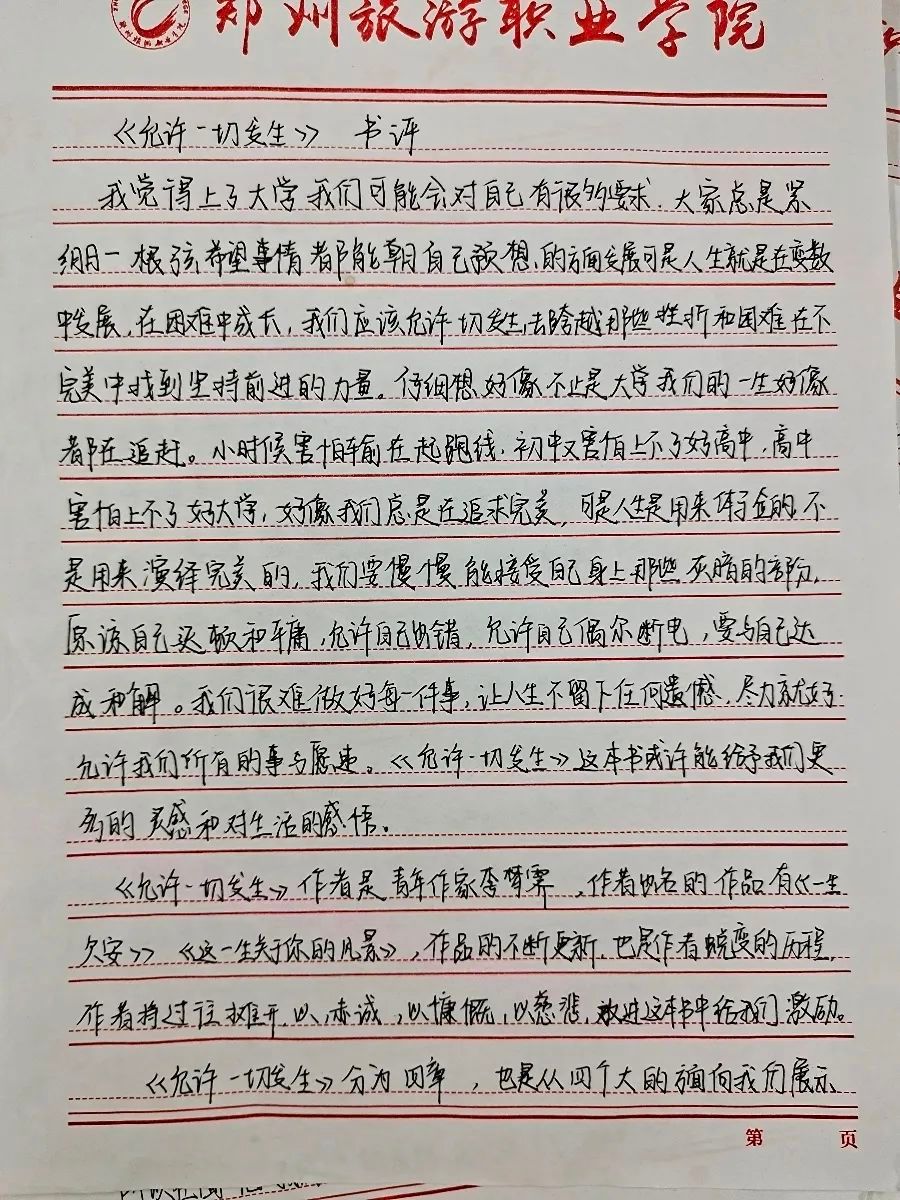 郑州旅游职业学院
《允许一切发生》 书评
我觉得上了大学我们可能会对自己有很多要求.大家总是紧
绷一根弦希望事情都能朝自己预想的方面发展可是人生就是在变数
中发展,在困难中成长,我们应该允许一切发生,去跨越那些挫折和困难在不
完美中找到坚持前进的力量。仔细想好像不止是大学我们的一生好像
都在追赶。小时候害怕输在起跑线,初中又害怕上不了好高中,高中
害怕上不了好大学,好像我们总是在追求完美,可是人生是用来体验的,不
是用来演绎完美的,我们要慢慢能接受自己身上那些灰暗的部份,
原谅自己迟顿和平庸,允许自己出错,允许自己偶尔断电,要与自己达
成和解。我们很难做好每一件事,让人生不留下任何遗憾,尽力就好.
允许我们所有的事与愿违。《允许一切发生》这本书或许能给予我们更
多的灵感和对生活的感悟。
《允许一切发生》作者是青年作家李梦霁,作者出名的作品有《一生
欠安》《这一生关于你的风景》,作品的不断更新,也是作者蜕变的历程,
作者将过往摊开,以赤诚,以慷慨,以慈悲,放进这本书中给我们激励。
《允许一切发生》分为四章,也是从四个大的方面向我们展示
第 页